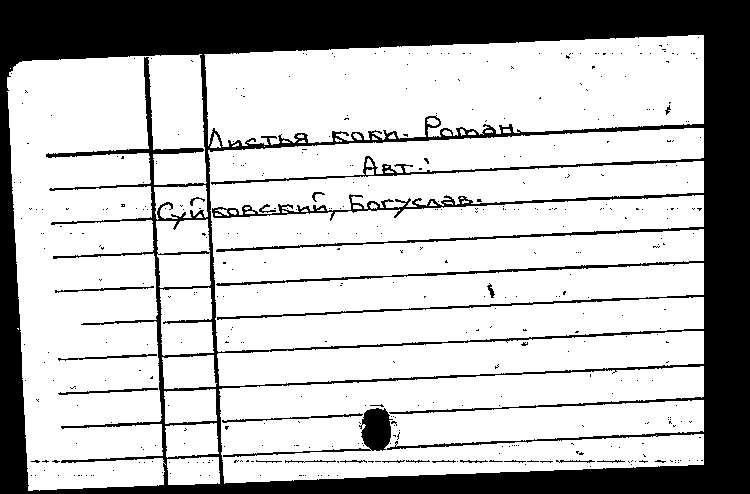 Листья коки. Роман.
Авт.:
Суйковский, Богуслав.